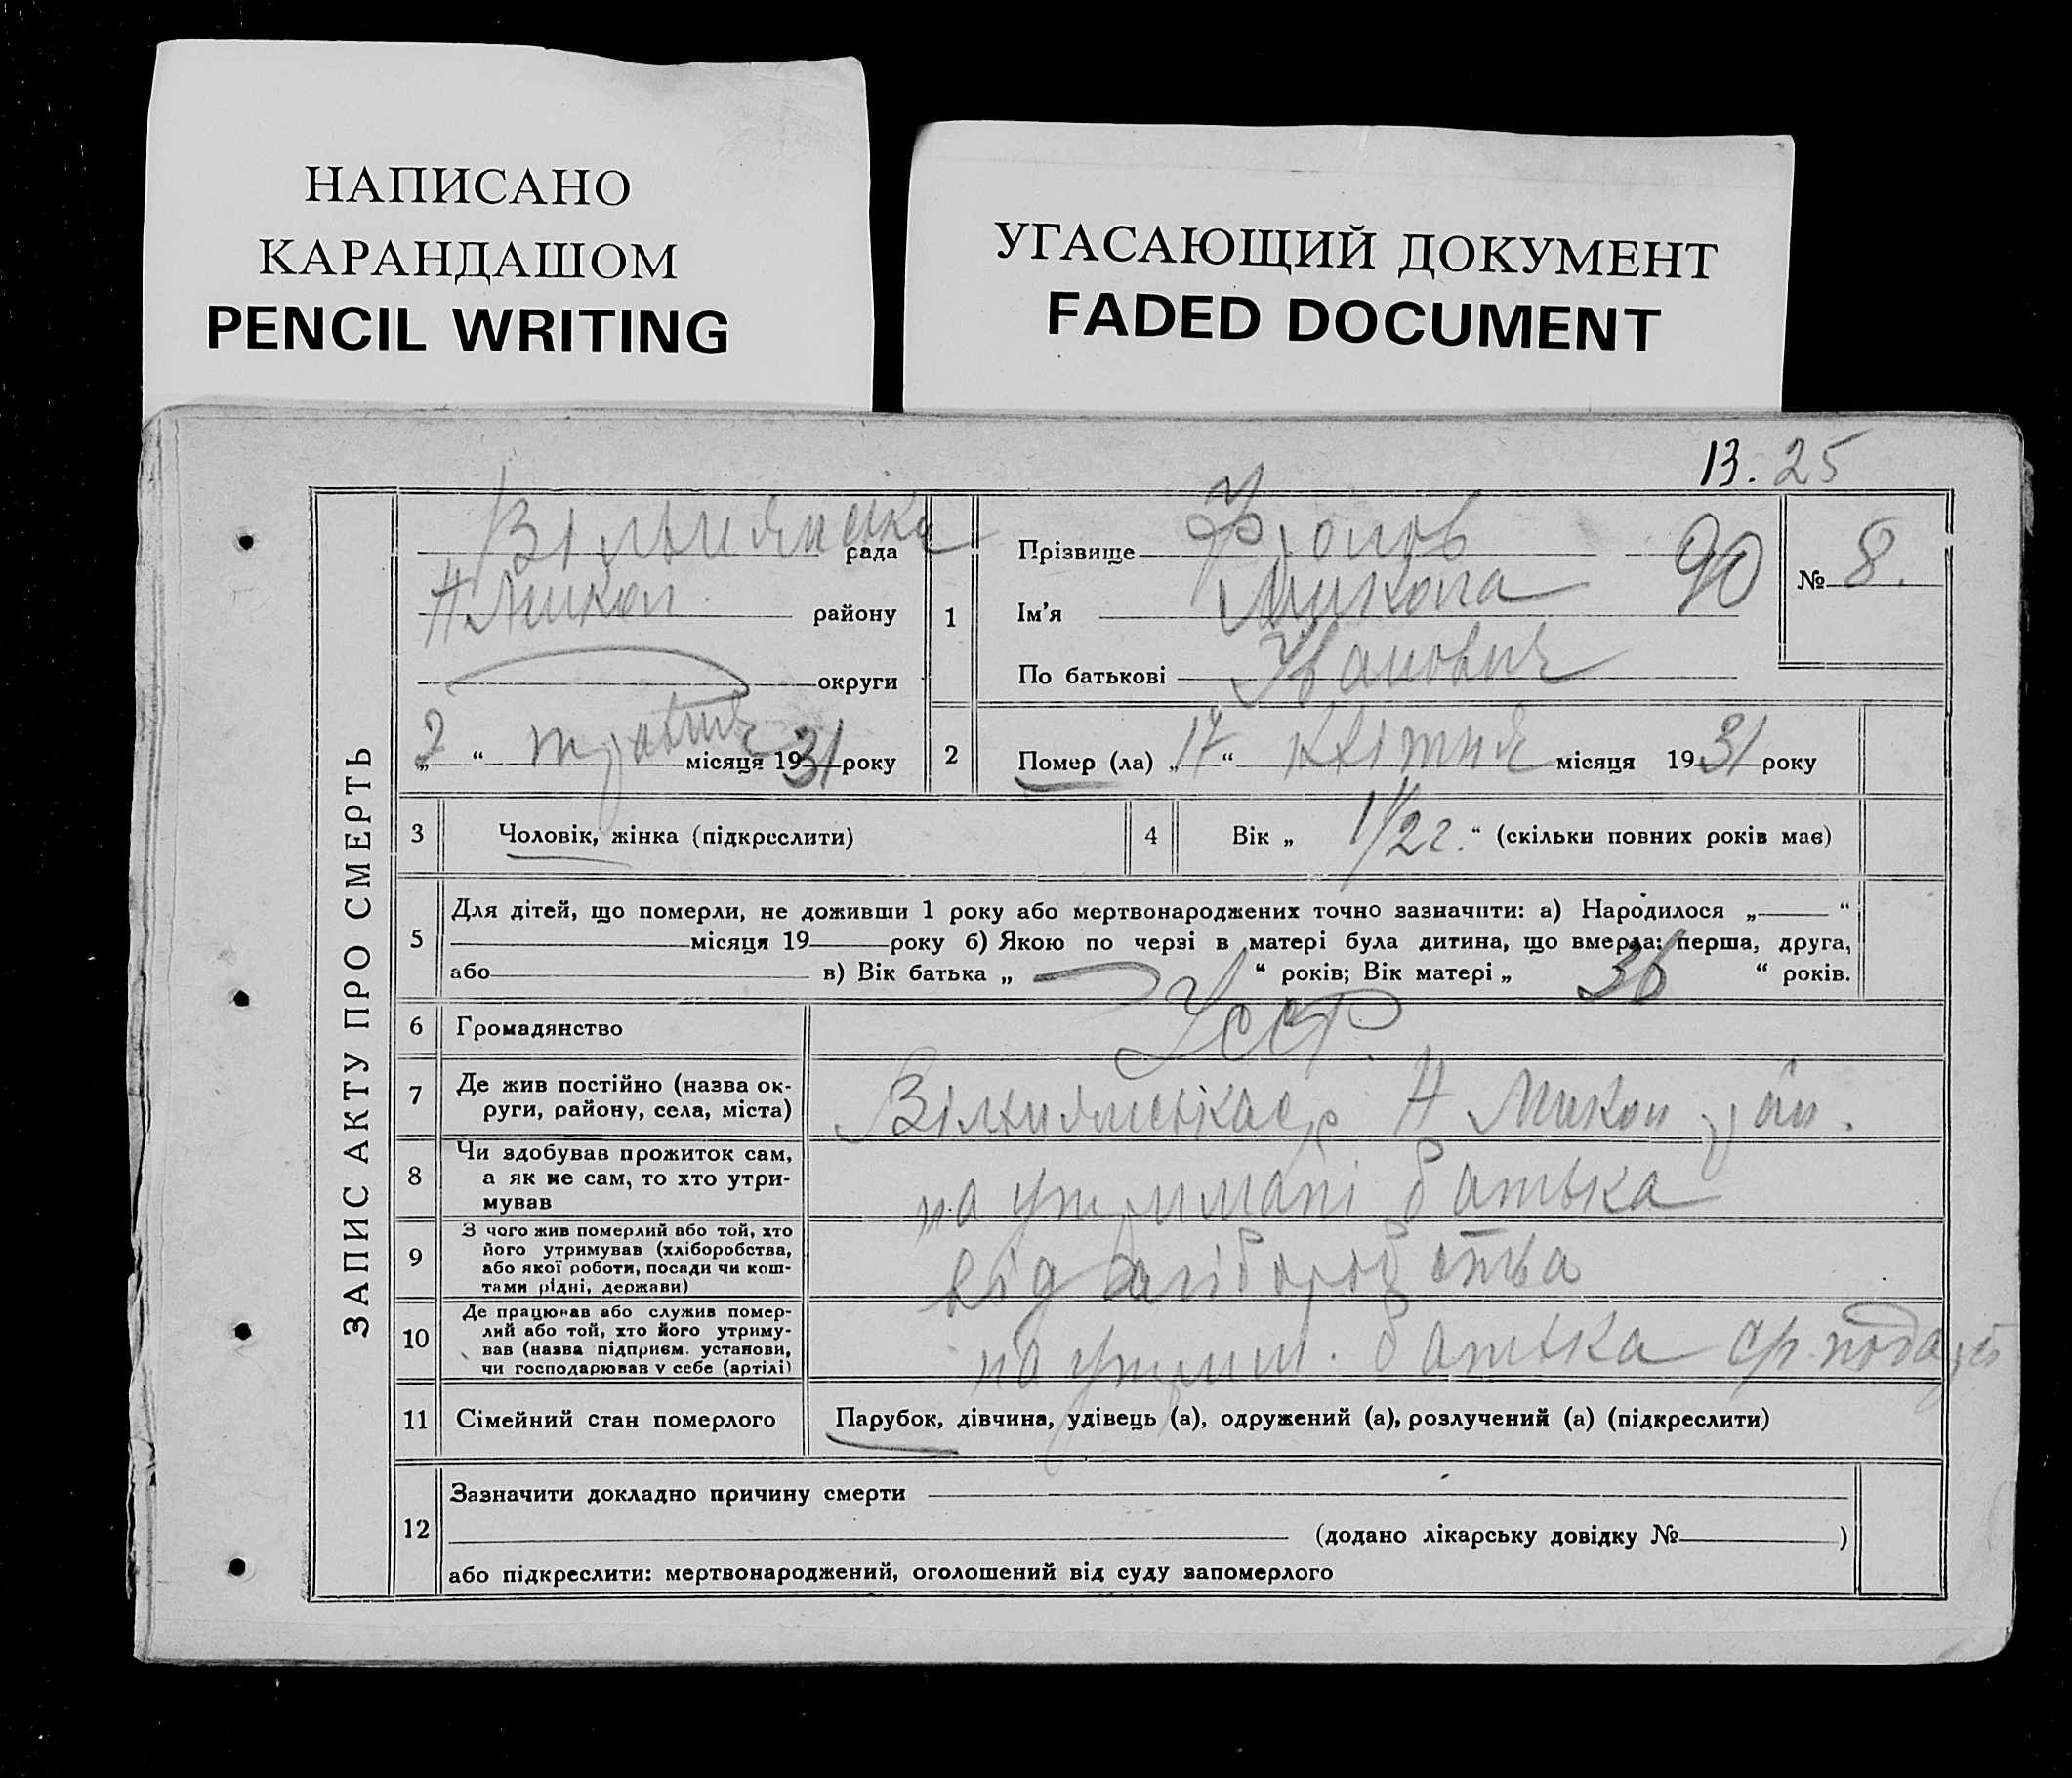 НАПИСАНО
КАРАНДАШОМ
PENCIL WRITING
УГАСАЮЩИЙ ДОКУМЕНТ
FADED DOCUMENT
13. 25
ЗАПИС АКТУ ПРО СМЕРТЬ
рада
Н Микол. району
округи
„2“ травня місяця 1931 року
1
Прізвище 90
Ім'я Микола
По батькові Іванович
№ 8.
2
Помер (ла) „17“ квітня місяця 1931 року
3
Чоловік, жінка (підкреслити)
4
Вік „ 1 1/2 г. “ (скільки повних років має)
5
Для дітей, що померли, не доживши 1 року або мертвонароджених точно зазначити: а) Народилося „ “
місяця 19 року б) Якою по черзі в матері була дитина, що вмерла: перша, друга,
або в) Вік батька „ “ років; Вік матері „ 36 “ років.
6
Громадянство
УССР.
7
Де жив постійно (назва ок-
руги, району, села, міста)
Н Микол рай.
8
Чи здобував прожиток сам,
а як не сам, то хто утри-
мував
на утримані батька
9
З чого жив померлий або той, хто
його утримував (хліборобства,
або якої роботи, посади чи кош-
тами рідні, держави)
від хліборобства
10
Де працював або служив помер-
лий або той, хто його утриму-
вав (назва підприєм. установи,
чи господарював у себе (артілі)
на утрим. батька
11
Сімейний стан померлого
Парубок, дівчина, удівець (а), одружений (а), розлучений (а) (підкреслити)
12
Зазначити докладно причину смерти
(додано лікарську довідку № )
або підкреслити: мертвонароджений, оголошений від суду запомерлого